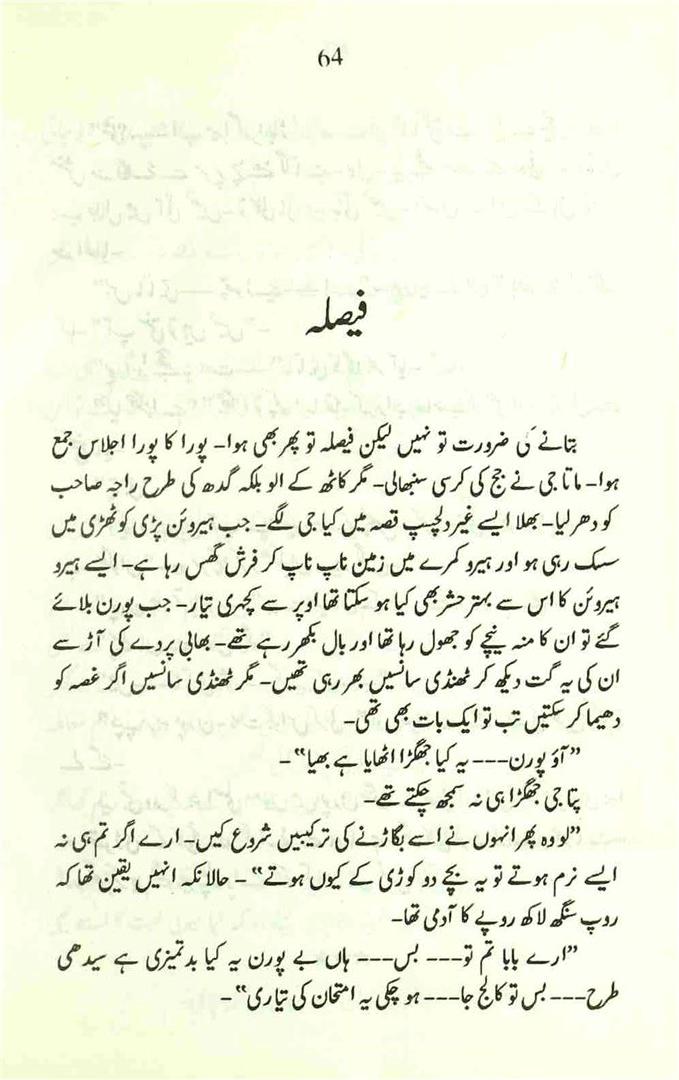 64
فیصلہ
بتانے کی ضرورت تو نہیں لیکن فیصلہ تو پھر بھی ہوا۔ پورا کا پورا اجلاس جمع
ہوا۔ ماتا جی نے جج کی کرسی سنبھالی۔ مگر کاٹھ کے الو بلکہ گدھ کی طرح راجہ صاحب
کو دھر لیا۔ بھلا ایسے غیر دلچسپ قصہ میں کیا جی لگے۔ جب ہیروئن پڑی کوٹھڑی میں
سسک رہی ہو اور ہیرو کمرے میں زمین ناپ ناپ کر فرش گھس رہا ہے۔ ایسے ہیرو
ہیروئن کا اس سے بہتر حشر بھی کیا ہو سکتا تھا اوپر سے کچہری تیار۔ جب پورن بلائے
گئے تو ان کا منہ نیچے کو جھول رہا تھا اور بال بکھر رہے تھے۔ بھابی پردے کی آڑ سے
ان کی یہ گت دیکھ کر ٹھنڈی سانسیں بھر رہی تھیں۔ مگر ٹھنڈی سانسیں اگر غصہ کو
دھیما کر سکتیں تب تو ایک بات بھی تھی۔
”آؤ پورن--- یہ کیا جھگڑا اٹھایا ہے بھیا“۔
پتا جی جھگڑا ہی نہ سمجھ چکتے تھے۔
”لو وہ پھر انہوں نے اسے بگاڑنے کی ترکیبیں شروع کیں۔ ارے اگر تم ہی نہ
ایسے نرم ہوتے تو یہ بچے دو کوڑی کے کیوں ہوتے“۔ حالانکہ انہیں یقین تھا کہ
روپ سنگھ لاکھ روپے کا آدمی تھا۔
”ارے بابا تم تو--- بس--- ہاں بے پورن یہ کیا بدتمیزی ہے سیدھی
طرح--- بس تو کالج جا--- ہو چکی یہ امتحان کی تیاری“۔